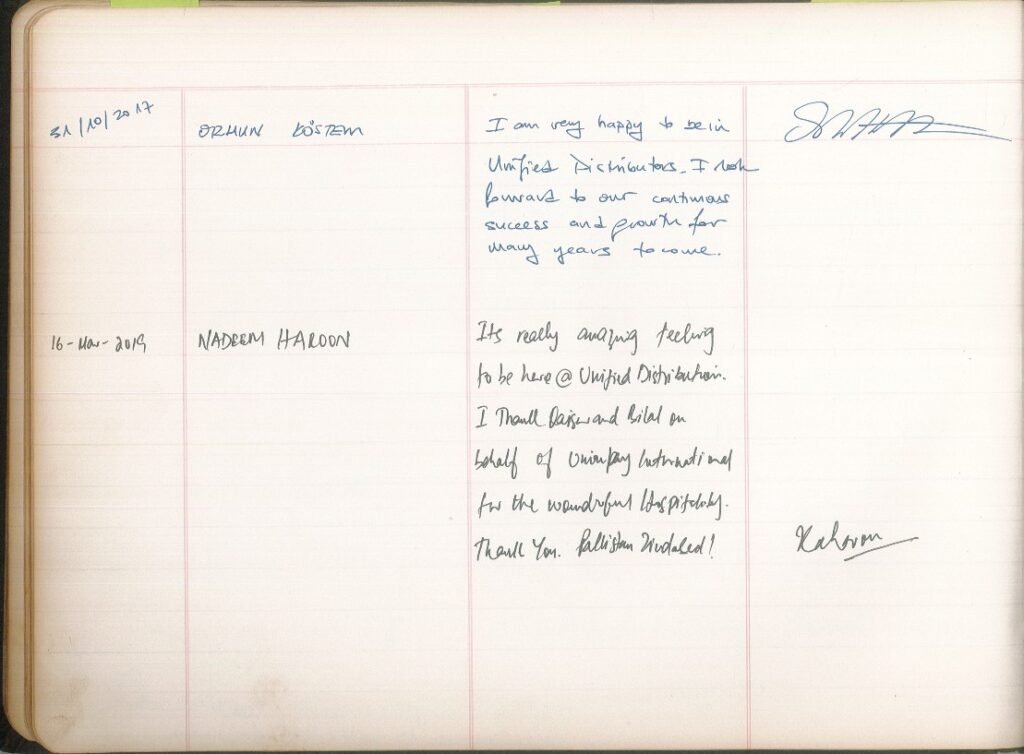 31/10/2017 ORHUN KÖSTEM I am very happy to be in
Unified Distributors. I look
forward to our continuous
success and growth for
many years to come.
16-Mar-2019 NADEEM HAROON Its really amazing feeling
to be here @ Unified Distribution.
I Thank and Bilal on
behalf of Unionpay International
for the wonderful Hospitality.
Thank You. Pakistan Zindabad!